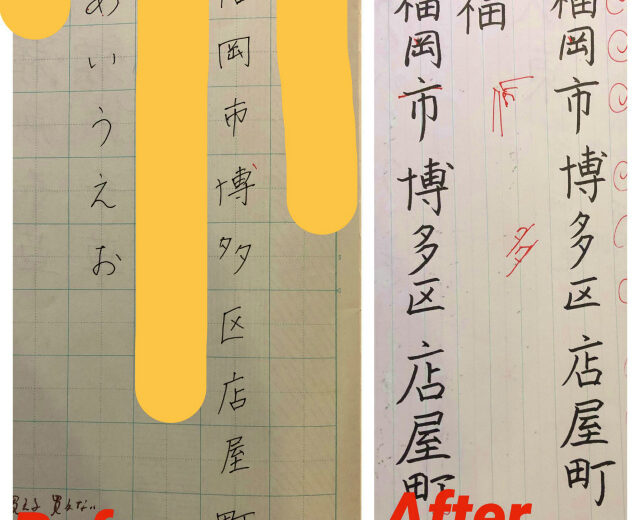 福岡市博多区店屋町
福
多
福岡市博多区店屋町
福岡市博多区店屋町
あいうえお
買える 買えない
Before
After